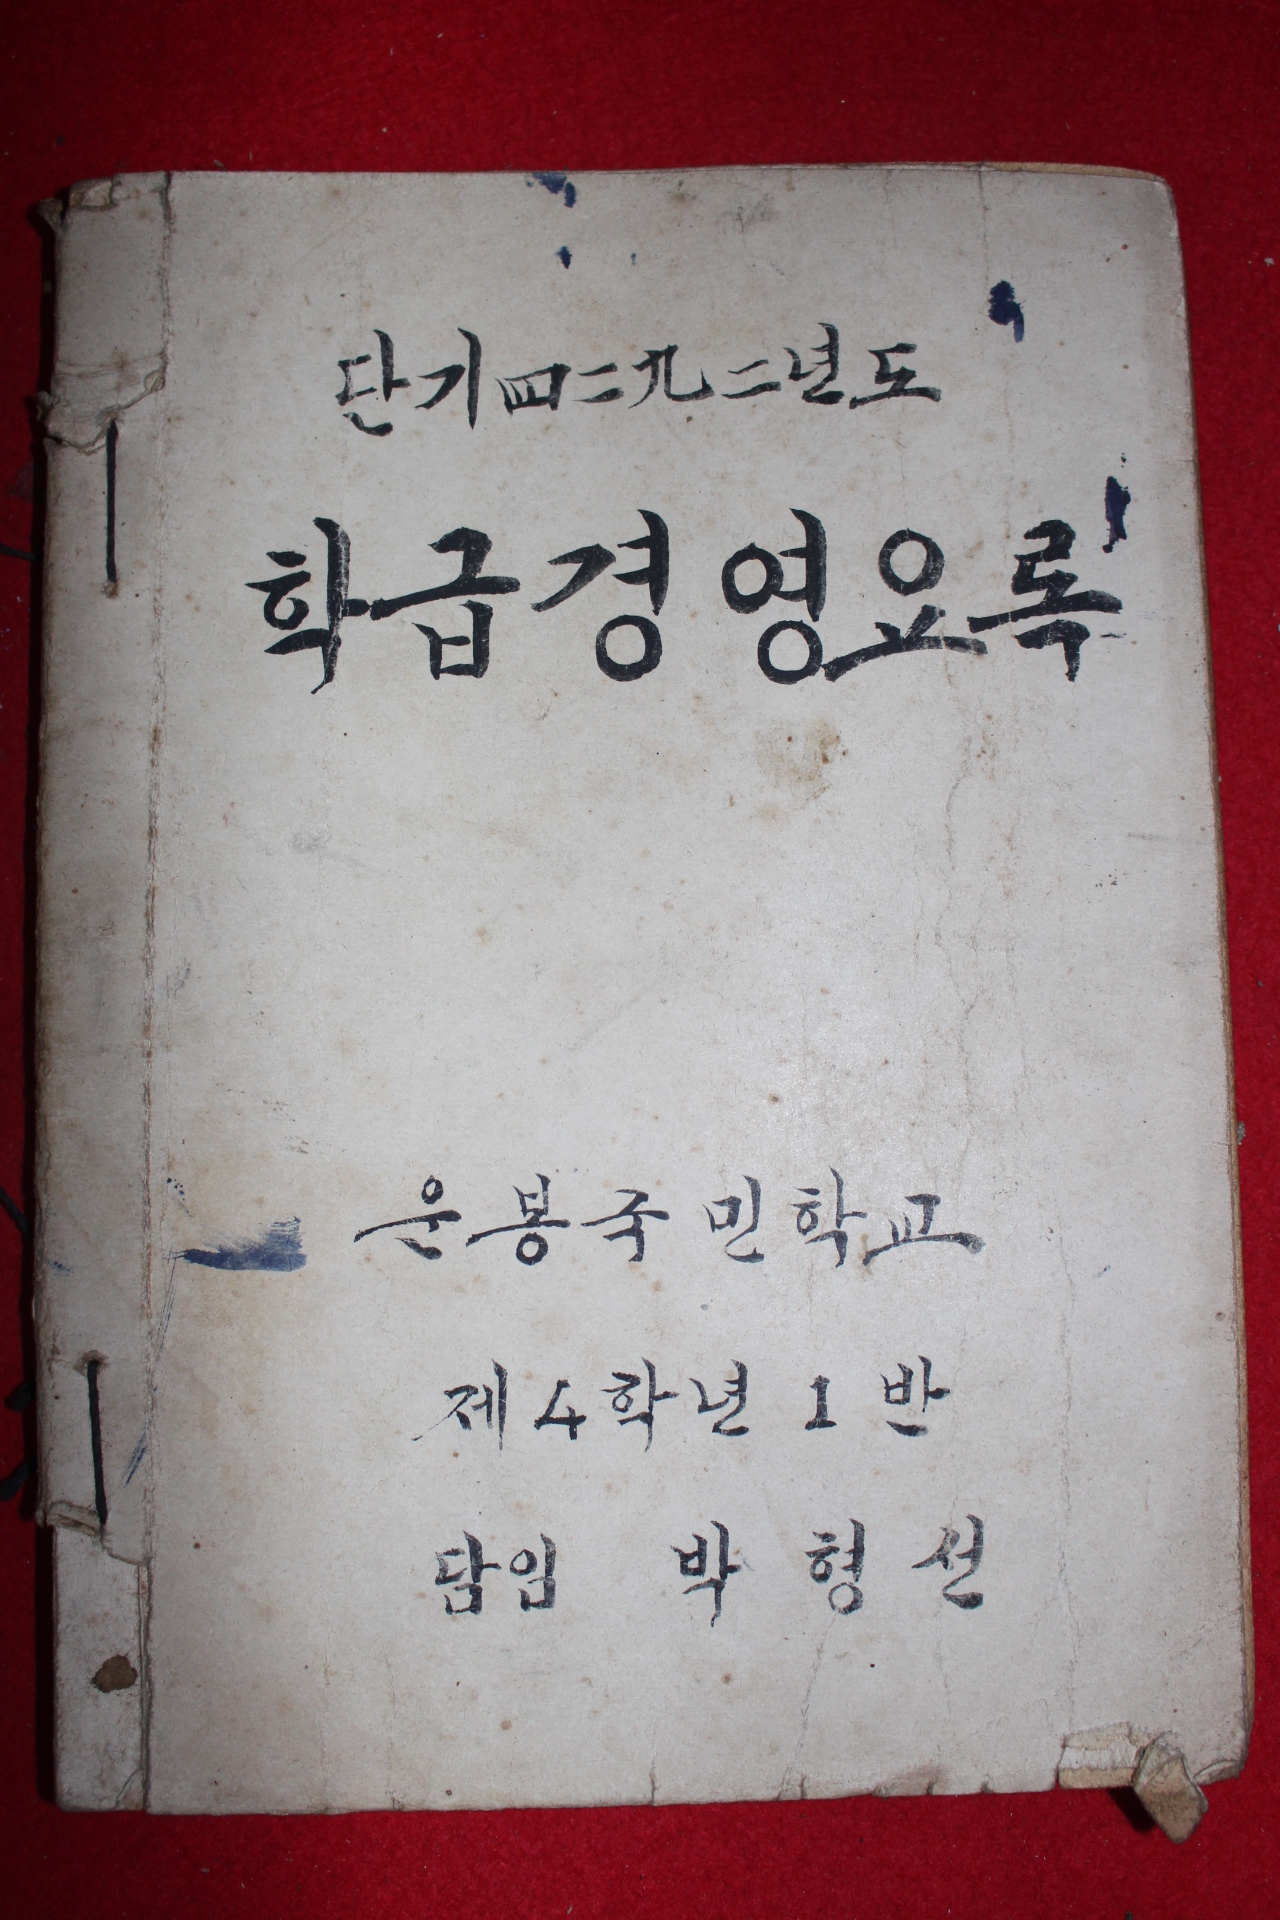 단기四二九二년도
학급경영요록
운봉국민학교
제4학년 1반
담임 박형선